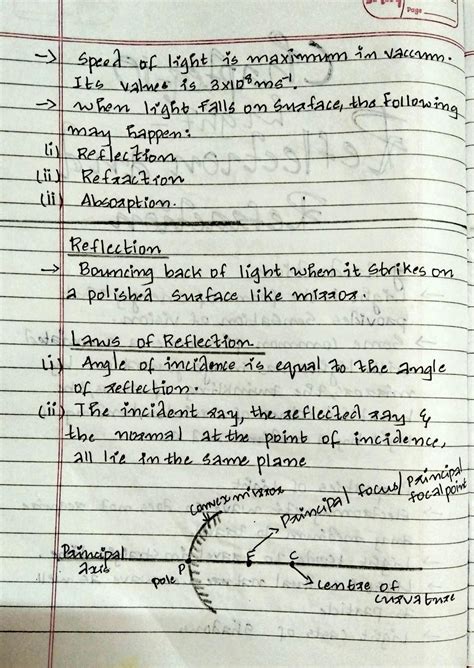 Page
-> Speed of light is maximum in vaccum.
Its values is 3x10⁸ms⁻¹.
-> When light falls on surface, the following
may happen:
(i) Reflection
(ii) Refraction
(ii) Absorption.
Reflection
-> Bouncing back of light when it strikes on
a polished surface like mirror.
Laws of Reflection
(i) Angle of incidence is equal to the angle
of reflection.
(ii) The incident ray, the reflected ray &
the normal at the point of incidence,
all lie in the same plane
Convex mirror
Principal focus/ Principal
focal point
Principal
axis
P
F
C
pole
Centre of
curvature